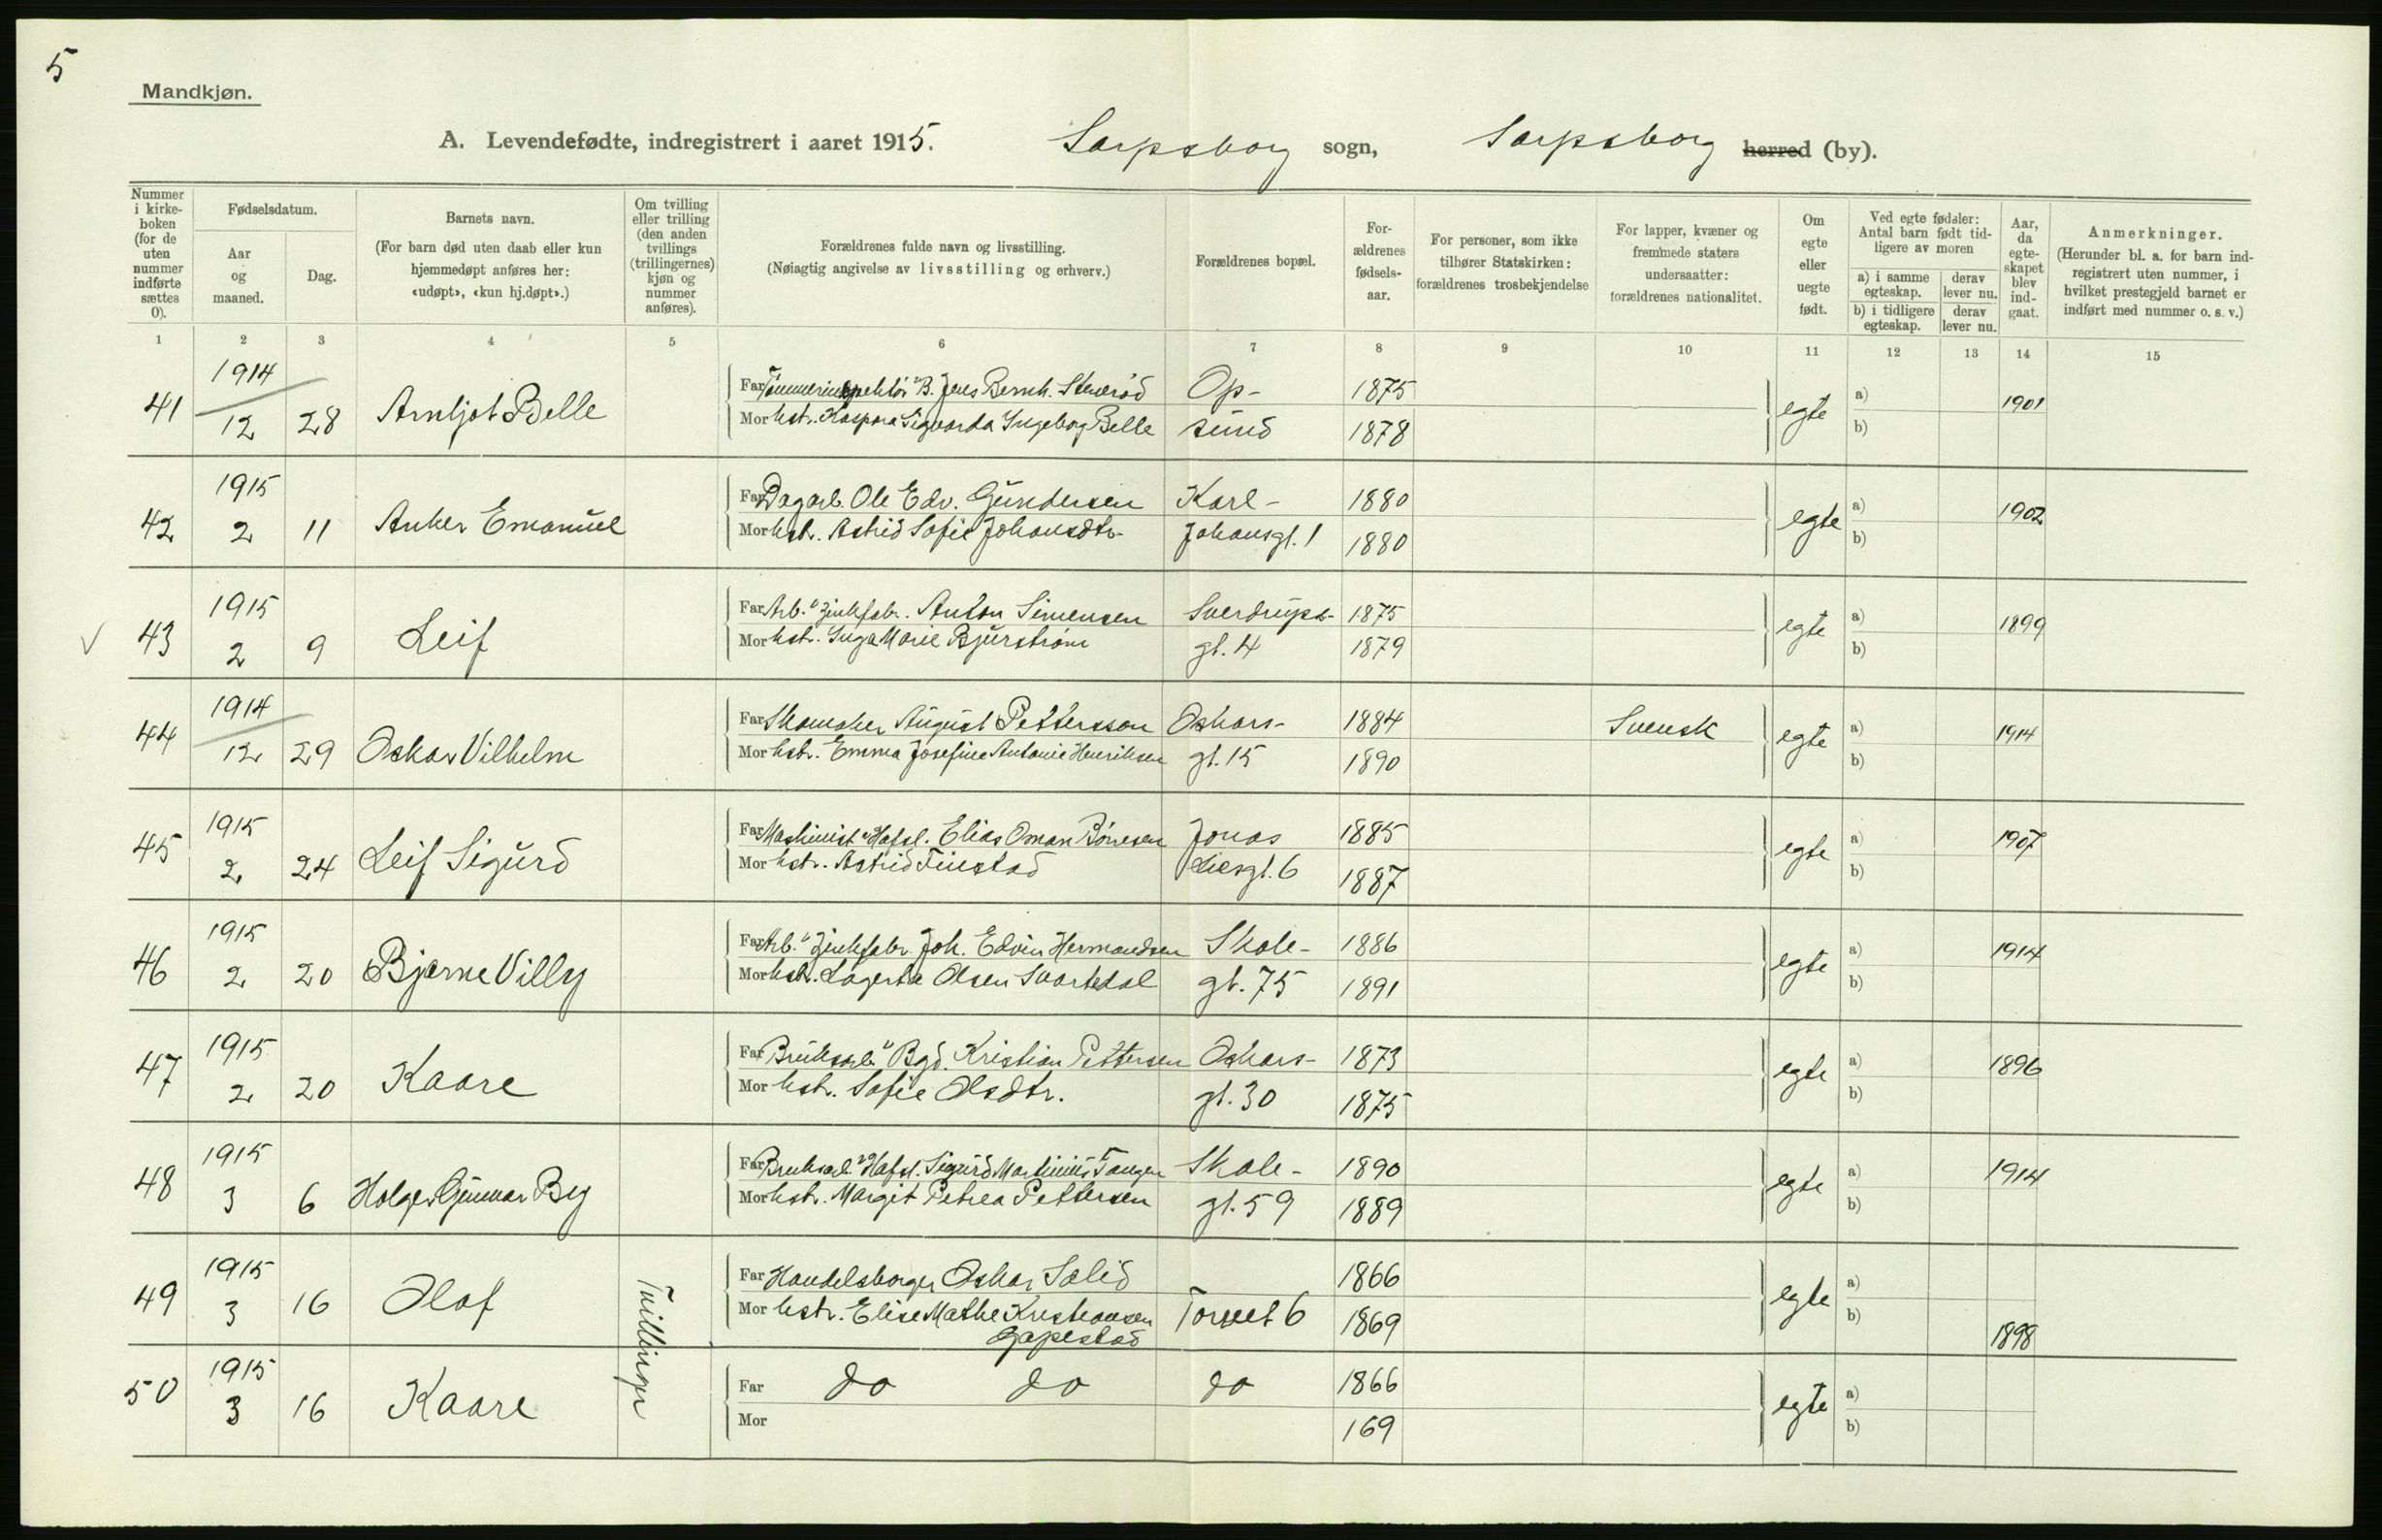 5
Mandkjøn.
A. Levendefødte, indregistrert i aaret 1915. Sarpsborg sogn, Sarpsborg herred (by).
Nummer i kirkeboken (for de uten nummer indførte sættes 0).
Fødselsdatum.
Aar og maaned.
Dag.
Barnets navn.
(For barn død uten daab eller kun hjemmedøpt anføres her: «udøpt», «kun hj.døpt».)
Om tvilling eller trilling (den anden tvillings (trillingernes) kjøn og nummer anføres).
Forældrenes fulde navn og livsstilling.
(Nøiagtig angivelse av livsstilling og erhverv.)
Forældrenes bopæl.
Forældrenes fødselsaar.
For personer, som ikke tilhører Statskirken: forældrenes trosbekjendelse
For lapper, kvæner og fremmede staters undersaatter: forældrenes nationalitet.
Om egte eller uegte født.
Ved egte fødsler: Antal barn født tidligere av moren
a) i samme egteskap. derav lever nu.
b) i tidligere egteskap. derav lever nu.
Aar, da egteskapet blev indgaat.
Anmerkninger.
(Herunder bl. a. for barn indregistrert uten nummer, i hvilket prestegjeld barnet er indført med nummer o. s. v.)
1 2 3 4 5 6 7 8 9 10 11 12 13 14 15
41 1914 12 28 Arnljot Belle
Far Tömmerinspektör B. Jens Bernh. Stenerød Op- 1875 egte a) 1901
Mor hstr. Kaspara Sigvarda Ingeborg Belle sund 1878 b)
42 1915 2 11 Anker Emanuel
Far Dagarb. Ole Edv. Gundersen Karl- 1880 egte a) 1902
Mor hstr. Astrid Sofie Johansdtr. Johansgt. 1 1880 b)
43 1915 2 9 Leif
Far Arb. v/ Zinkfabr. Anton Simensen Sverdrups- 1875 egte a) 1899
Mor hstr. Inga Marie Bjurstrøm gt. 4 1879 b)
44 1914 12 29 Oskar Vilhelm
Far Skomaker August Pettersson Oskars- 1884 Svensk egte a) 1914
Mor hstr. Emma Josefine Antonie Henriksen gt. 15 1890 b)
45 1915 2 24 Leif Sigurd
Far Maskinist v/ Hafsl. Elias Oman Börresen Jonas 1885 egte a) 1907
Mor hstr. Astrid Finstad Liesgt. 6 1887 b)
46 1915 2 20 Bjarne Villy
Far Arb. v/ Zinkfabr. Joh. Edvin Hermandsen Skole- 1886 egte a) 1914
Mor hstr. Lagerta Olsen Svartedal gt. 75 1891 b)
47 1915 2 20 Kaare
Far Bruksarb. v/ Bgd. Kristian Pettersen Oskars- 1873 egte a) 1896
Mor hstr. Sofie Olsdtr. gt. 30 1875 b)
48 1915 3 6 Holger Gunnar Bey
Far Bruksarb. v/ Hafsl. Sigurd Martinius Tangen Skole- 1890 egte a) 1914
Mor hstr. Margit Petrea Pettersen gt. 59 1889 b)
49 1915 3 16 Olaf Tvillinger
Far Handelsborger Oskar Solid 1866 egte a)
Mor hstr. Elise Mathe Kristiansen Torvet 6 1869 b) 1898
Gapestad
50 1915 3 16 Kaare
Far do do do 1866 egte a)
Mor 169 b)